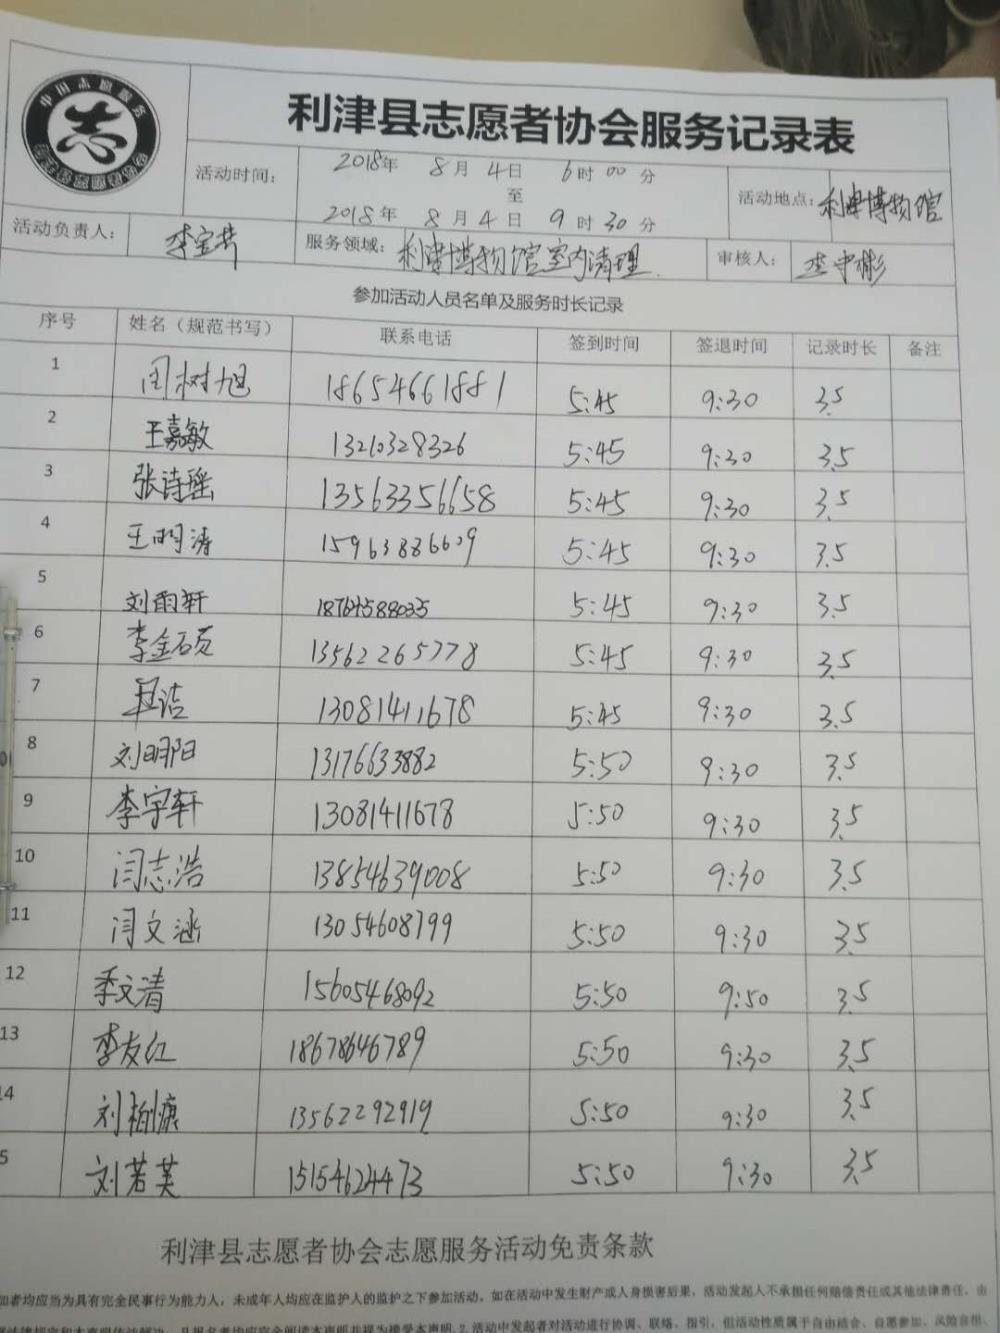 中国志愿服务
志
利津县志愿者协会服务记录表
活动时间: 2018年 8月 4日 6时00分
至
2018年 8月 4日 9时30分
活动地点: 利津博物馆
活动负责人:
服务领域: 利津博物馆室内清理.
审核人: 李中彬
参加活动人员名单及服务时长记录
序号 姓名（规范书写） 联系电话 签到时间 签退时间 记录时长 备注
1 周树旭 18654661881 5:45 9:30 3.5
2 王嘉敏 13210328326 5:45 9:30 3.5
3 张诗瑶 13563356658 5:45 9:30 3.5
4 王明涛 15963886609 5:45 9:30 3.5
5 刘雨轩 5:45 9:30 3.5
6 李金硕 13562265778 5:45 9:30 3.5
7 13081411678 5:45 9:30 3.5
8 刘明阳 13176633882 5:50 9:30 3.5
9 李宇轩 13081411678 5:50 9:30 3.5
10 闫志浩 13854639008 5:50 9:30 3.5
11 闫文涵 13054608799 5:50 9:30 3.5
12 季文清 15605468092 5:50 9:50 3.5
13 李友红 18678646789 5:50 9:30 3.5
14 13562292919 5:50 9:30 3.5
5 刘若芙 15154624473 5:50 9:30 3.5
利津县志愿者协会志愿服务活动免责条款
加者均应当为具有完全民事行为能力人，未成年人均应在监护人的监护之下参加活动。如在活动中发生财产或人身损害后果，活动发起人不承担任何赔偿责任或其他法律责任。由
且报名者均应完全阅读本声明并视为接受本声明.2.活动中发起者对活动进行协调、联络、指引，但活动性质属于自由结合、自愿参加、风险自担、